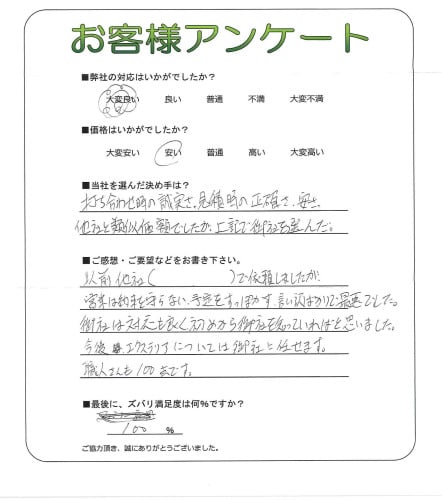 お客様アンケート
■弊社の対応はいかがでしたか?
大変良い 良い 普通 不満 大変不満
■価格はいかがでしたか?
大変安い 安い 普通 高い 大変高い
■当社を選んだ決め手は?
打ち合わせ時の誠実さ、見積時の正確さ、安さ
他社と類似価額でしたが、上記で御社を選んだ。
■ご感想・ご要望などをお書き下さい。
以前他社( )で依頼しましたが、
営業は約束を守らない、予定をすっぽかす、言い訳ばかりで最悪でした。
御社は対応も良く初めから御社を知っていればと思いました。
今後エクステリアについては御社に任せます。
職人さんも100点です。
■最後に、ズバリ満足度は何%ですか?
100 %
ご協力頂き、誠にありがとうございました。